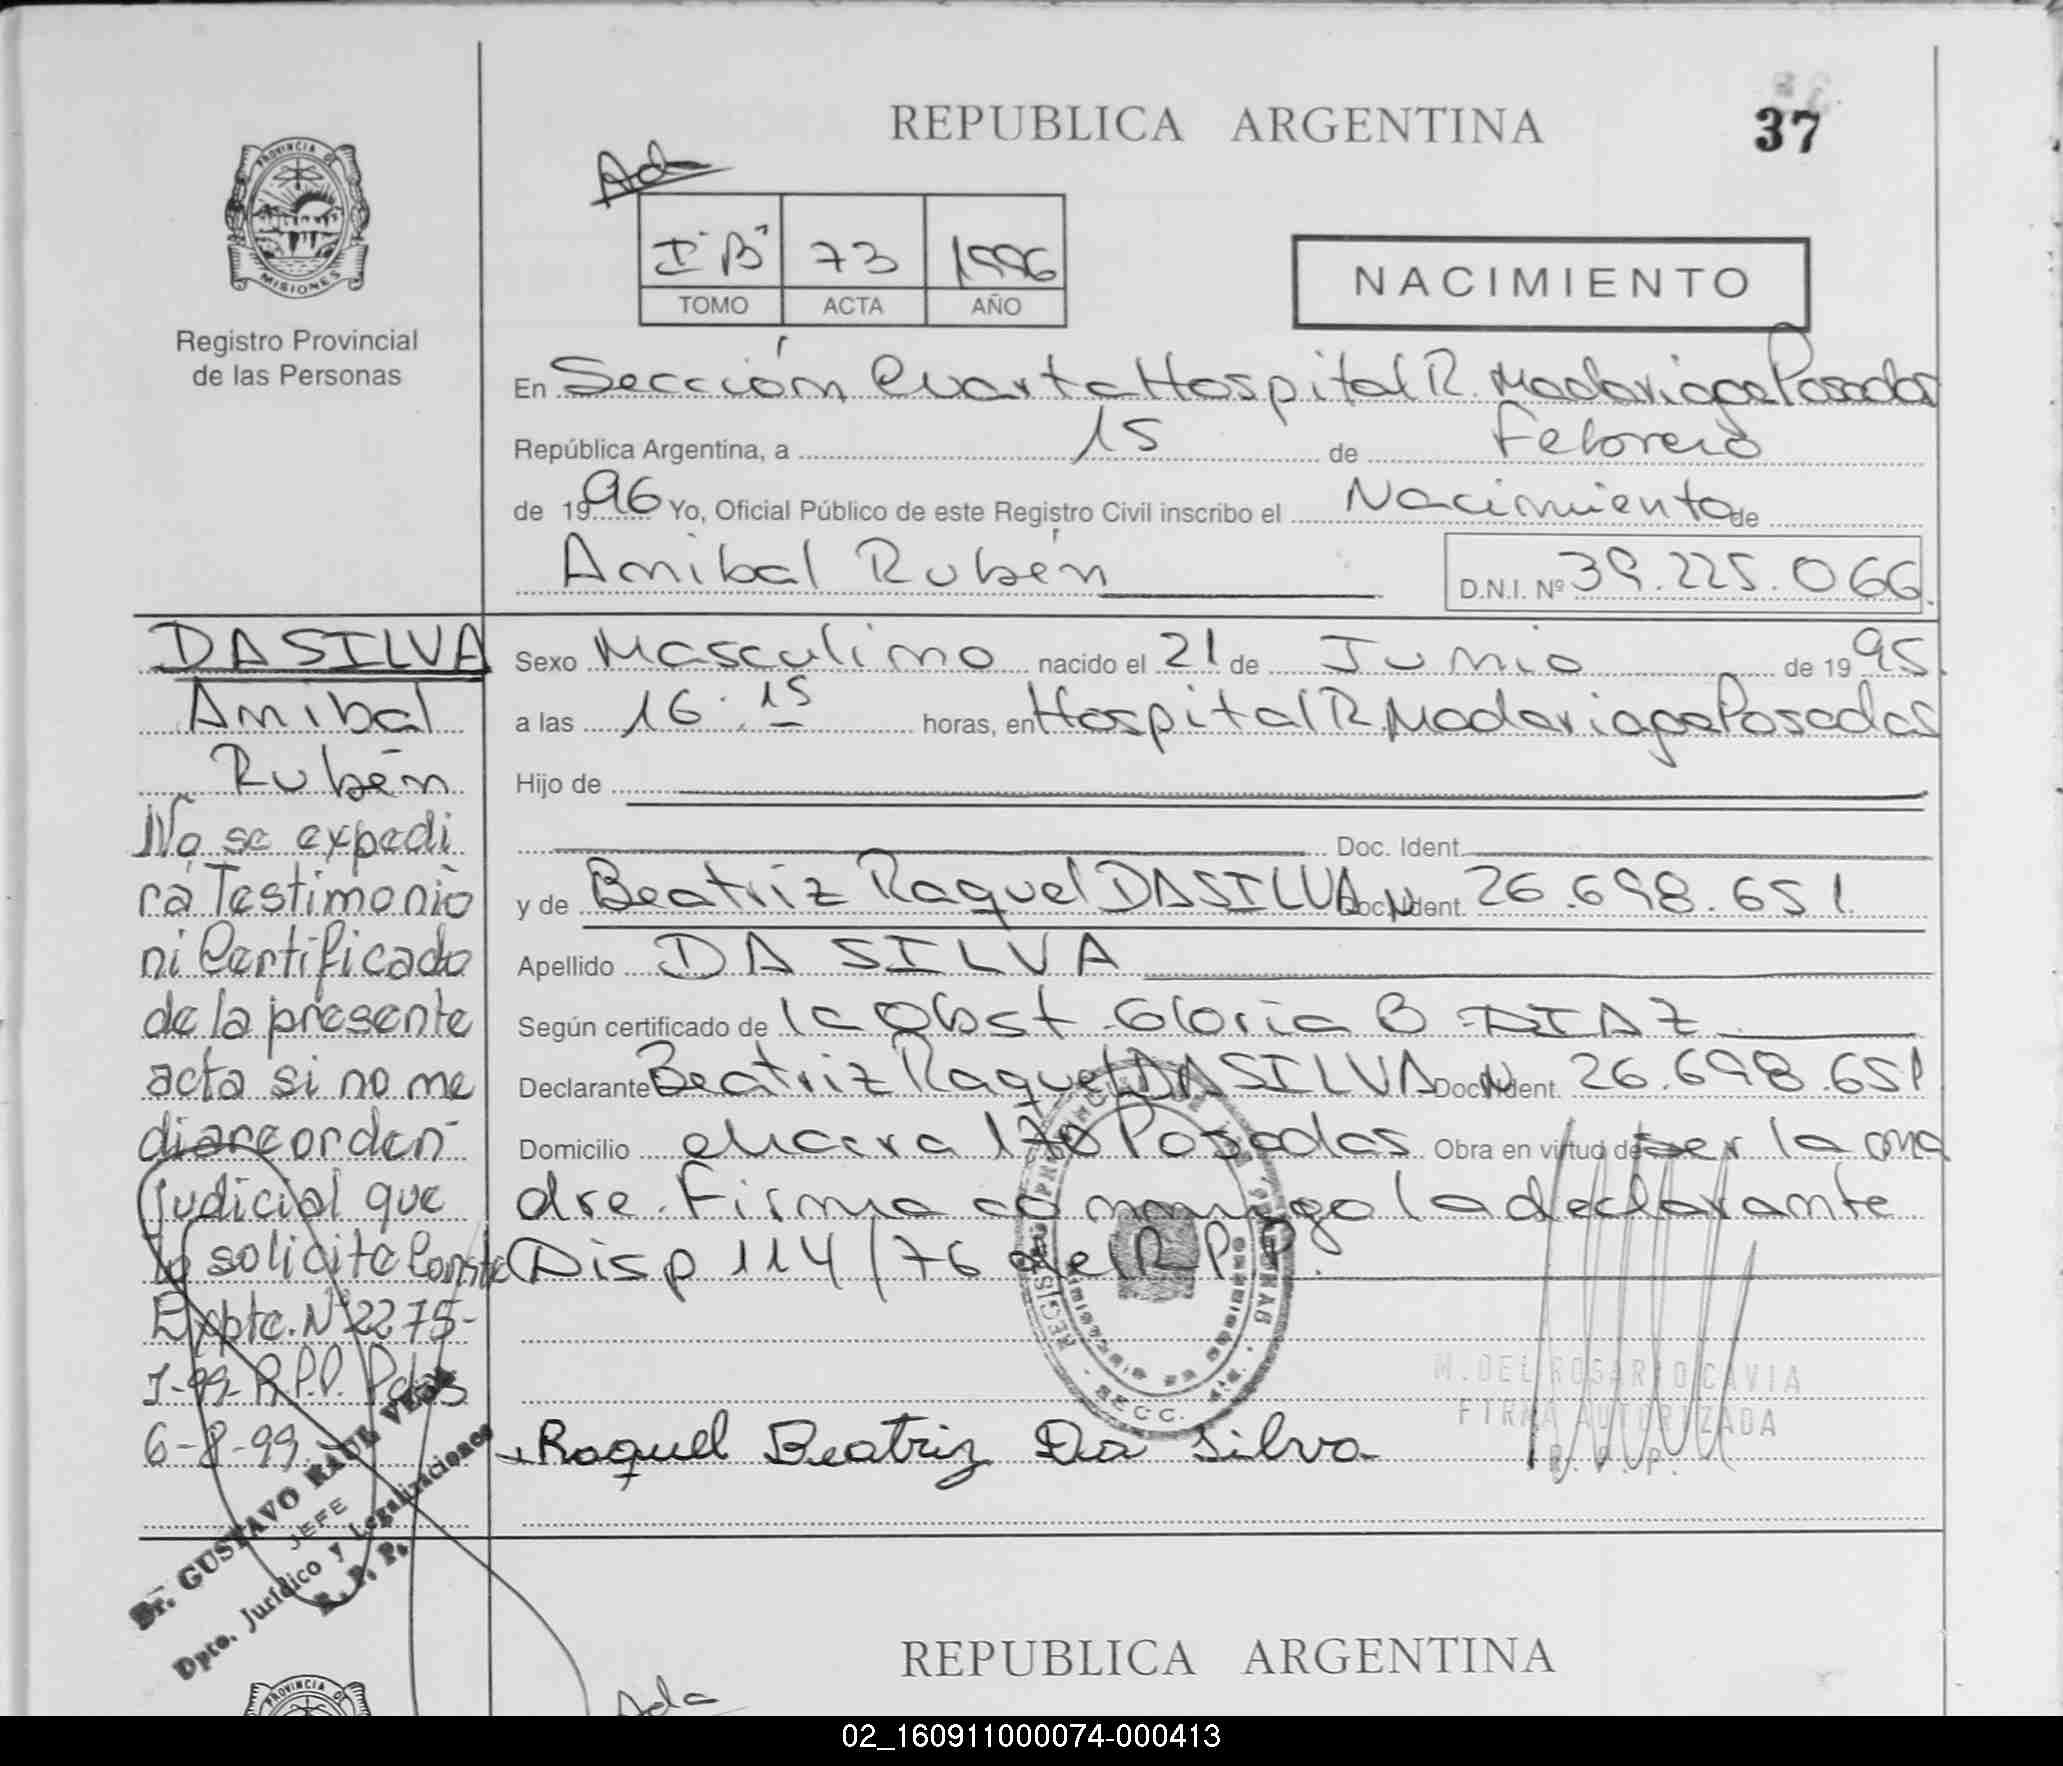 REPUBLICA ARGENTINA
37
PROVINCIA DE
MISIONES
Registro Provincial
de las Personas
Ada
I "B" 73 1996
TOMO ACTA AÑO
NACIMIENTO
En Sección Cuarta Hospital R. Madariaga Posadas
República Argentina, a 15 de Febrero
de 1996 Yo, Oficial Público de este Registro Civil inscribo el Nacimiento de
Anibal Rubén D.N.I. Nº 39.225.066
DA SILVA
Anibal
Rubén
No se expedi
rá Testimonio
ni Certificado
de la presente
acta si no me
diare orden
judicial que
lo solicite Conste
Expte. Nº 2275-
J-99- R.P.P. Pdas
6-8-99.
Dr. GUSTAVO RAUL VERA
JEFE
Dpto. Jurídico y Legalizaciones
R. P. P.
Sexo Masculino nacido el 21 de Junio de 1995.
a las 16:15 horas, en Hospital R. Madariaga Posadas
Hijo de
Doc. Ident.
y de Beatriz Raquel DA SILVA Doc. Ident. N 26.698.651
Apellido DA SILVA
Según certificado de la Obst Gloria B DIAZ
Declarante Beatriz Raquel DA SILVA Doc. Ident. N 26.698.651
Domicilio chacra 170 Posadas Obra en virtud de ser la ma
dre. Firma conmigo la declarante
Disp 114/76 del R.P.P.
M. DEL ROSARIO CAVIA
FIRMA AUTORIZADA
R. P. P.
Raquel Beatriz Da Silva
REPUBLICA ARGENTINA
PROVINCIA DE
Ada
02_160911000074-000413